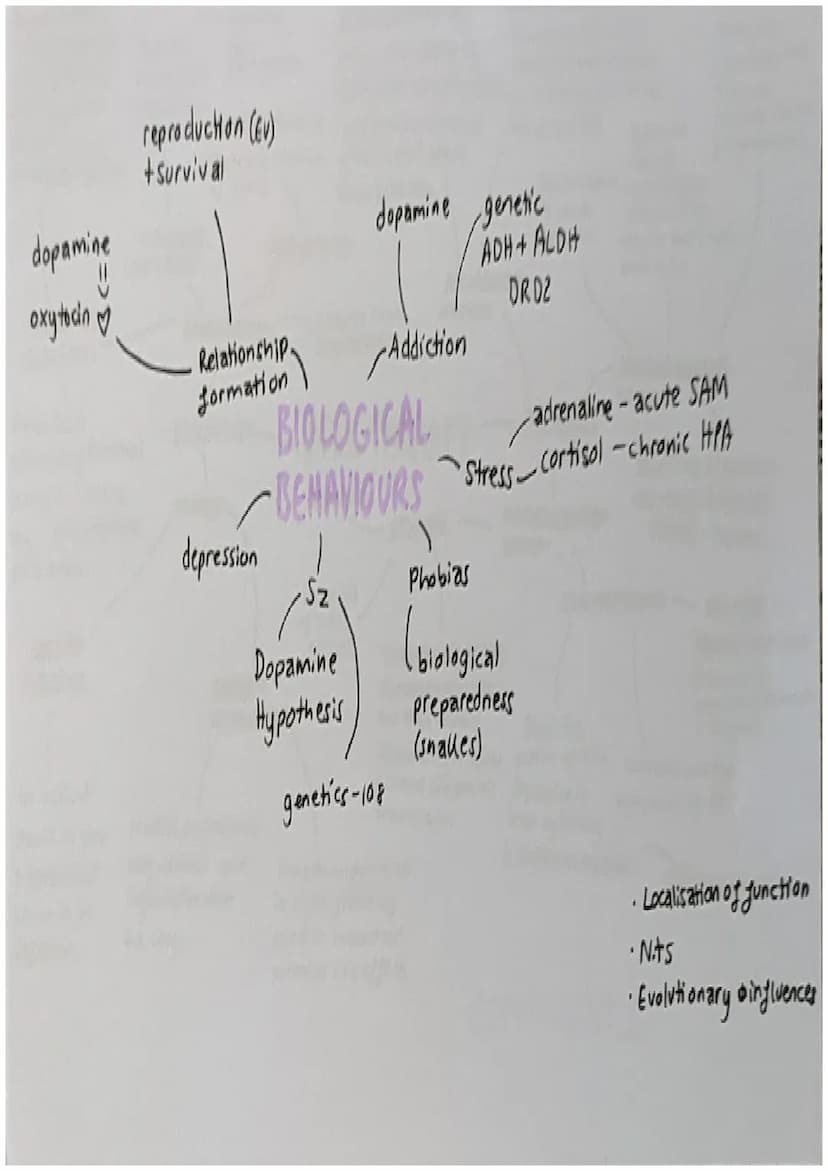 reproduction (EV)
+ survival
dopamine
oxytocin
Relationship
formation
dopamine
genetic
ADH + ALDH
DRD2
Addiction
BIOLOGICAL
BEHAVIOURS
Stress
adrenaline - acute SAM
cortisol - chronic HPA
depression
Sz
Dopamine
Hypothesis
genetics - 108
Phobias
biological
preparedness
(snakes)
· Localisation of function
· Nts
· Evolutionary influences